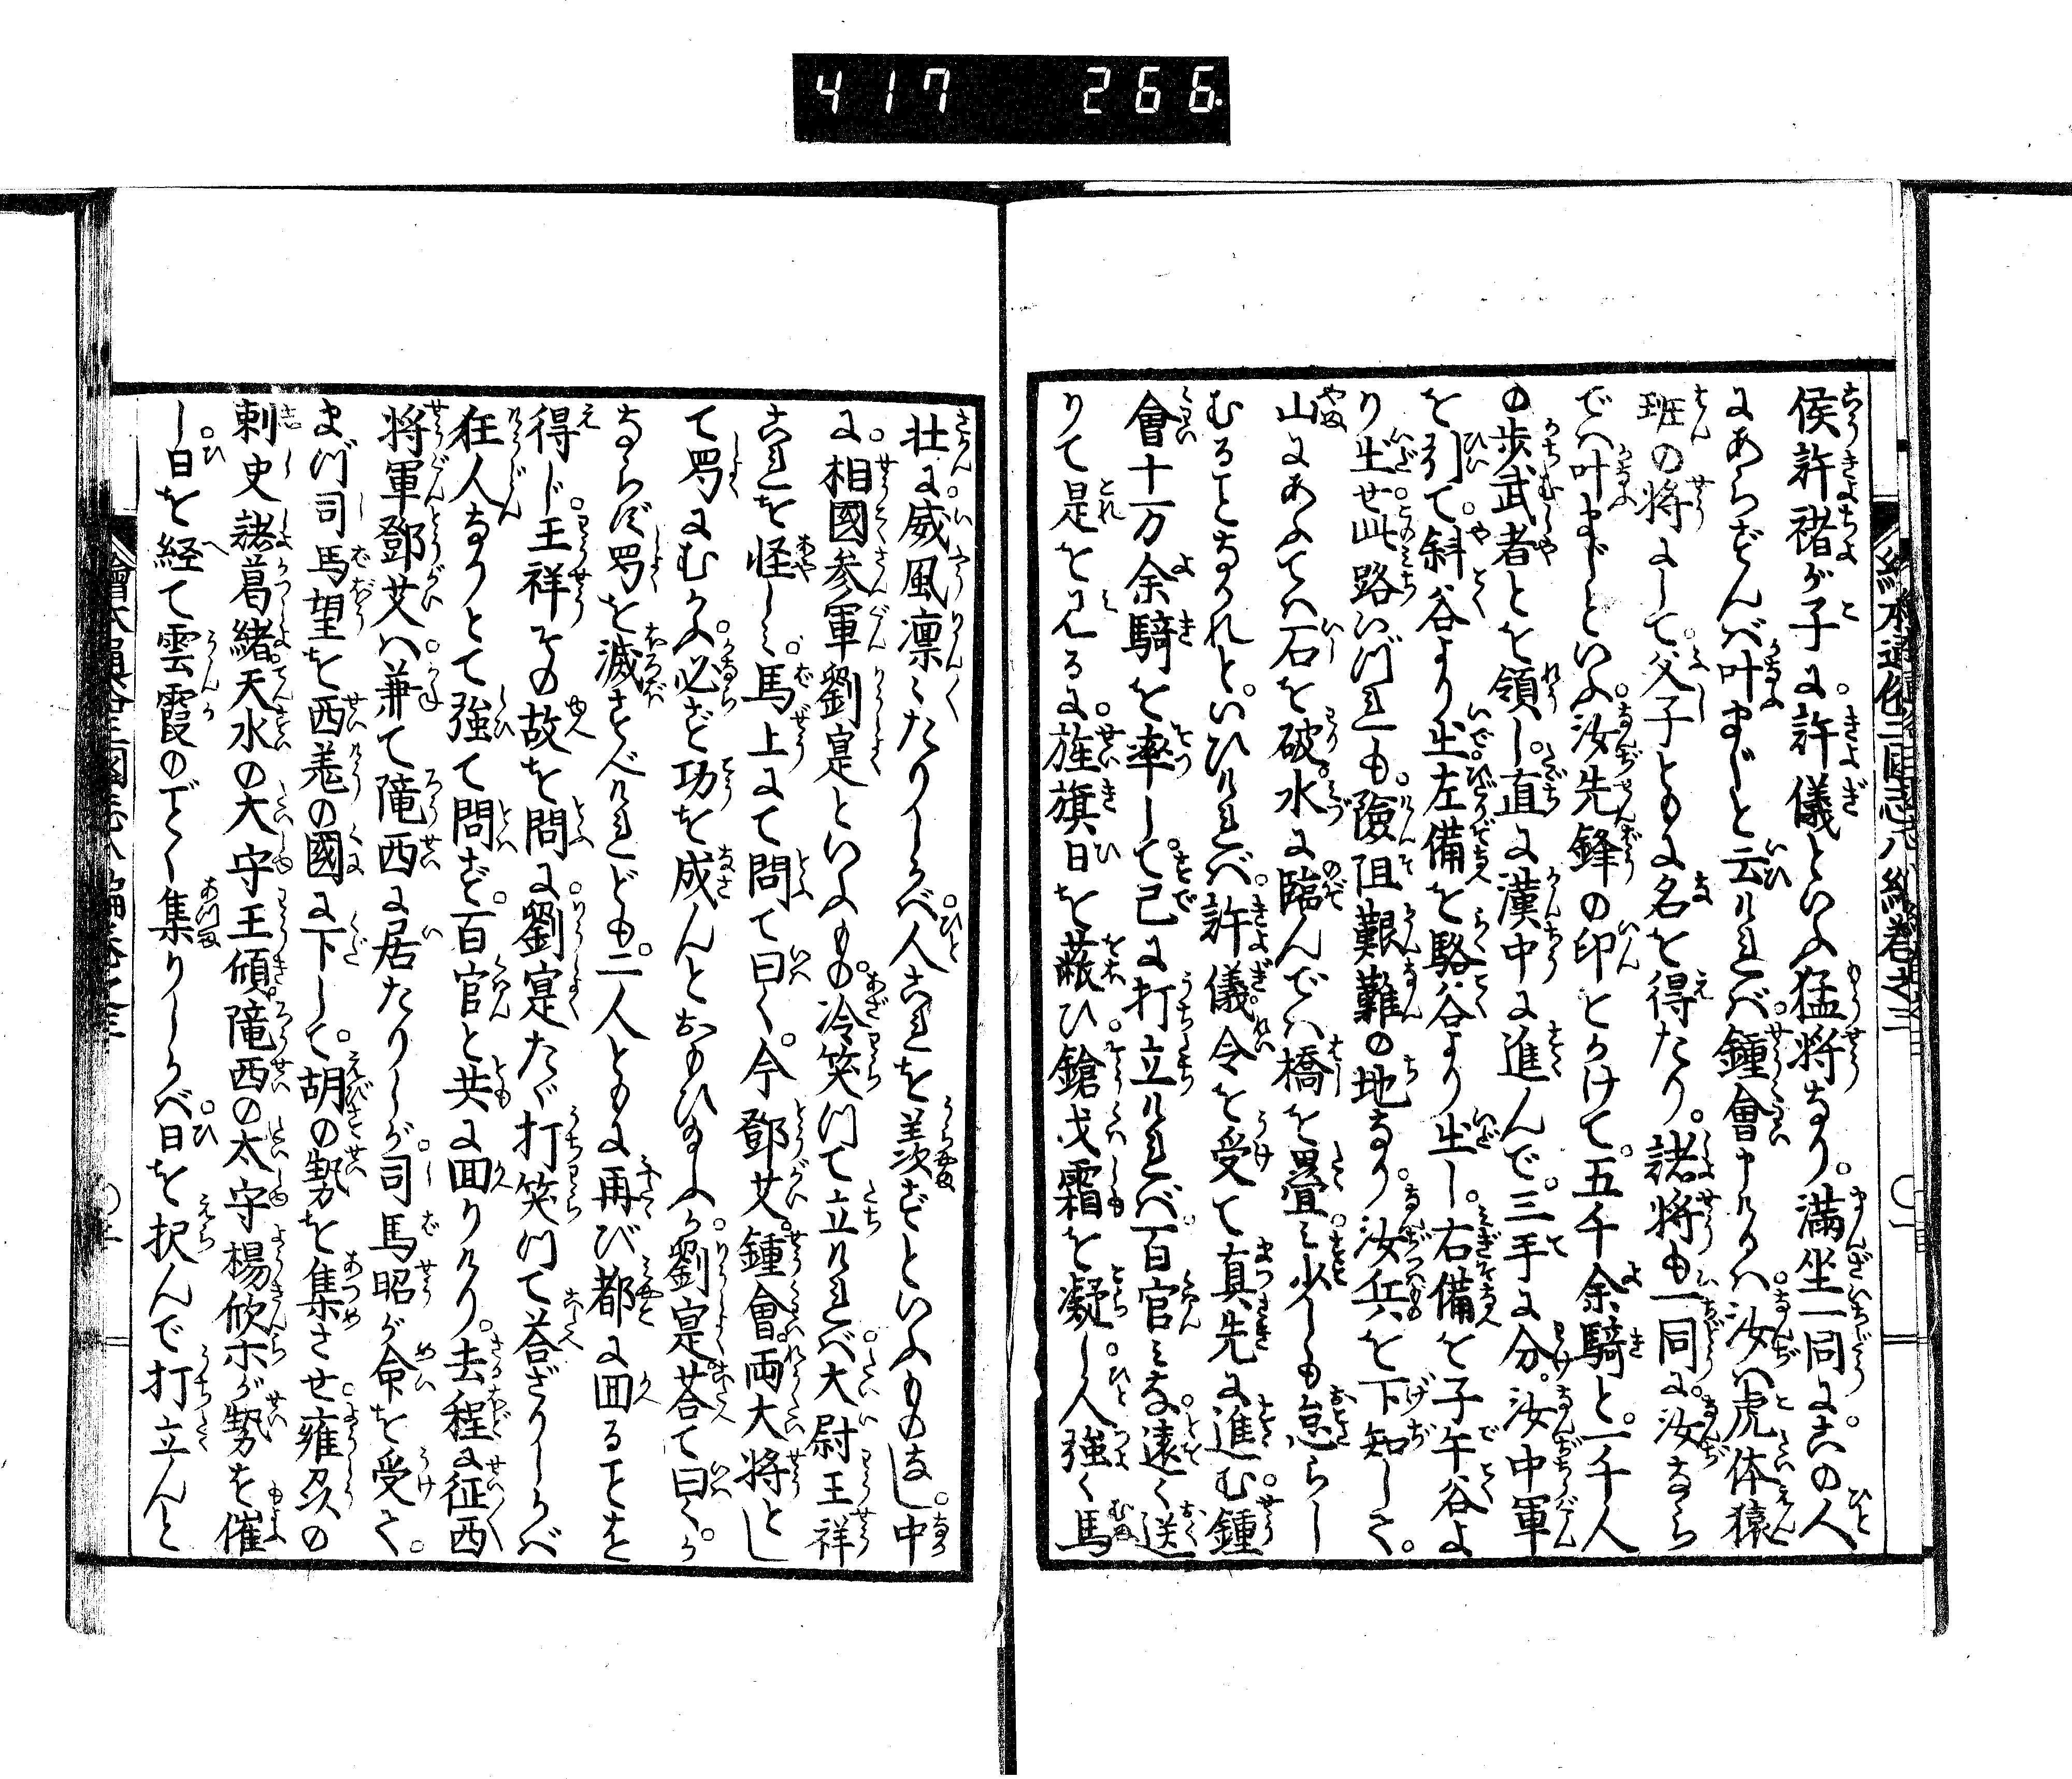 417 266
侯許褚が子に許儀といふ猛将なり。満坐一同に。この人
にあらざんバ叶まじと云けれバ。鍾會申けるハ。汝ハ虎体猿
班の将にして。父子ともに名を得たり。諸将も一同に。汝なら
でハ叶まじといふ。汝先鋒の印とかけて。五千余騎と。一千人
の歩武者とを領し。直に漢中に進んで。三手に分。汝中軍
を引て。斜谷より出。左備を駱谷より出し。右備を子午谷よ
り出せ。此路いづれも。險阻艱難の地なり。汝兵を下知して。
山にあふてハ石を破。水に臨んでハ橋を畳ミ。少しも怠らし
むることなかれと。いひけれバ。許儀。令を受て真先に進む。鍾
會十万余騎を率して。已に打立けれバ。百官ミな。遠く送
りて是を見るに。旌旗日を蔽ひ。鎗戈霜を凝し。人強く馬
壮に。威風凛々たりしかバ。人これを羨ずといふものなし。中
に。相國参軍劉寔といふもの。冷笑つて立けれバ。大尉王祥
これを怪しミ。馬上にて問て曰く。今鄧艾。鍾會。両大将とし
て蜀にむかふ。必ず功を成んとおもひ給ふか。劉寔。荅て曰く。か
ならず蜀を滅すべけれども。二人ともに再び都に回ることを
得じ。王祥その故を問に。劉寔たゞ打笑つて荅ざりしかバ
狂人なりとて強て問ず。百官と共に回りけり。去程に征西
将軍鄧艾ハ。兼て隴西に居たりしが。司馬昭が命を受て。
まづ司馬望を西羌の國に下して。胡の勢を集させ。雍州の
刺史諸葛緒。天水の大守王傾。隴西の太守楊欣ホが勢を催
し。日を経て雲霞のごとく集りしかバ。日を択んで打立んと